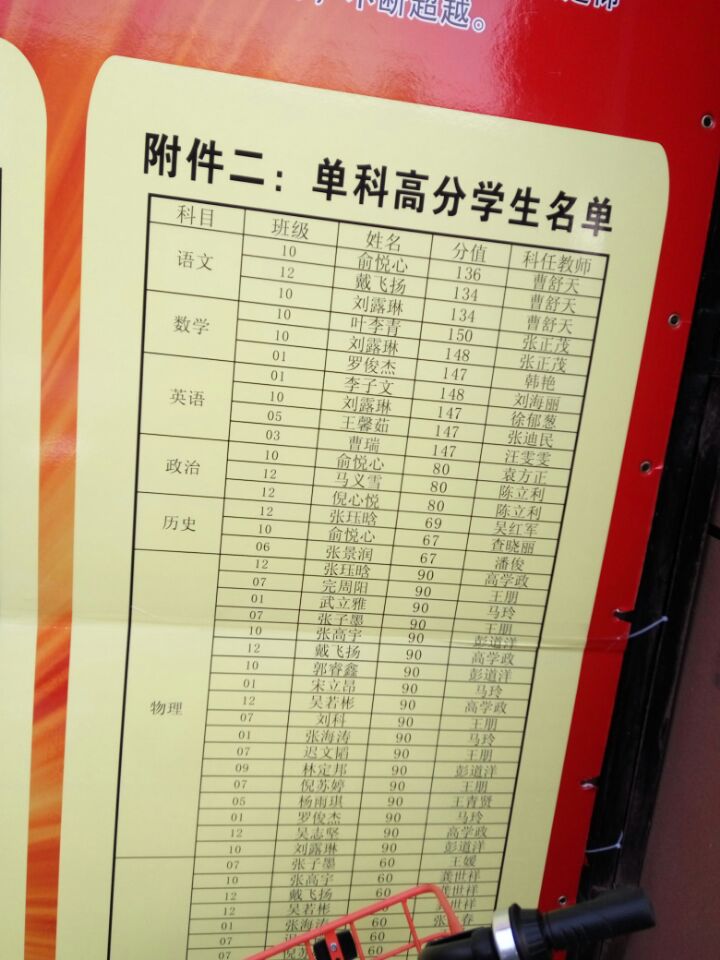 不断超越。
附件二：单科高分学生名单
科目 班级 姓名 分值 科任教师
语文 10 俞悦心 136 曹舒天
12 戴飞扬 134 曹舒天
10 刘露琳 134 曹舒天
数学 10 叶李青 150 张正茂
10 刘露琳 148 张正茂
01 罗俊杰 147 韩艳
英语 01 李子文 148 刘海丽
10 刘露琳 147 徐郁葱
05 王馨茹 147 张迪民
03 曹瑞 147 汪雯雯
政治 10 俞悦心 80 袁方正
12 马义雪 80 陈立利
12 倪心悦 69 陈立利
历史 12 张珏晗 67 吴红军
10 俞悦心 67 查晓丽
06 张景润 90 潘俊
物理 12 张珏晗 90 高学政
07 完周阳 90 王朋
01 武立雅 90 马玲
07 张子墨 90 王朋
10 张高宇 90 彭道洋
12 戴飞扬 90 高学政
10 郭睿鑫 90 彭道洋
01 宋立昂 90 马玲
12 吴若彬 90 高学政
07 刘科 90 王朋
01 张海涛 90 马玲
07 迟文韬 90 王朋
09 林定邦 90 彭道洋
07 倪苏婷 90 王朋
05 杨雨琪 90 王青贤
01 罗俊杰 90 马玲
12 吴志坚 90 高学政
10 刘露琳 90 彭道洋
07 张子墨 60 王媛
10 张高宇 60 龚世祥
12 戴飞扬 60 龚世祥
12 吴若彬 龚世祥
01 张海涛 60
07 60
07